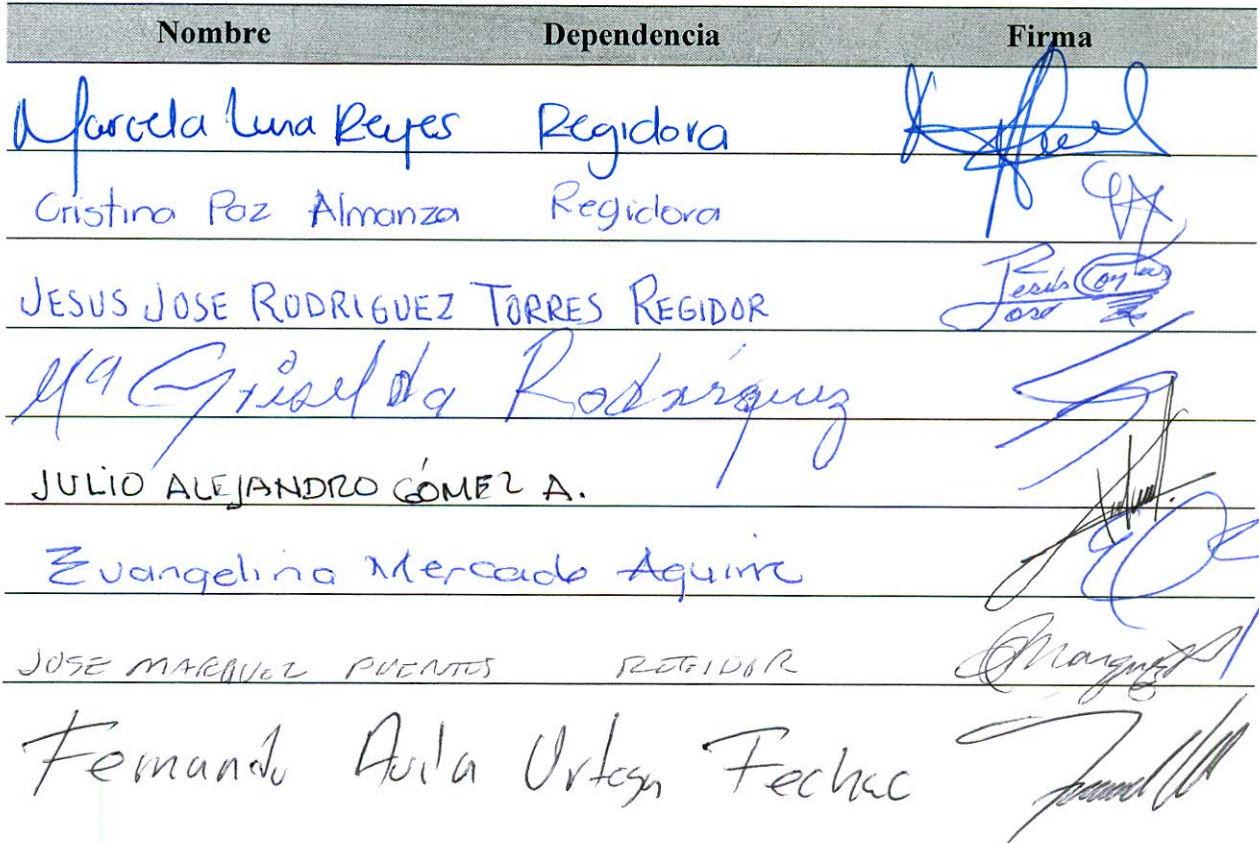 Nombre Dependencia Firma
Marcela Luna Reyes Regidora
Cristina Paz Almanza Regidora
JESUS JOSE RODRIGUEZ TORRES REGIDOR Jesús José
Mª Griselda Rodríguez
JULIO ALEJANDRO GÓMEZ A.
Evangelina Mercado Aguirre
JOSE MARQUEZ PUENTES REGIDOR Marquez
Fernando Avila Ortega Fechac